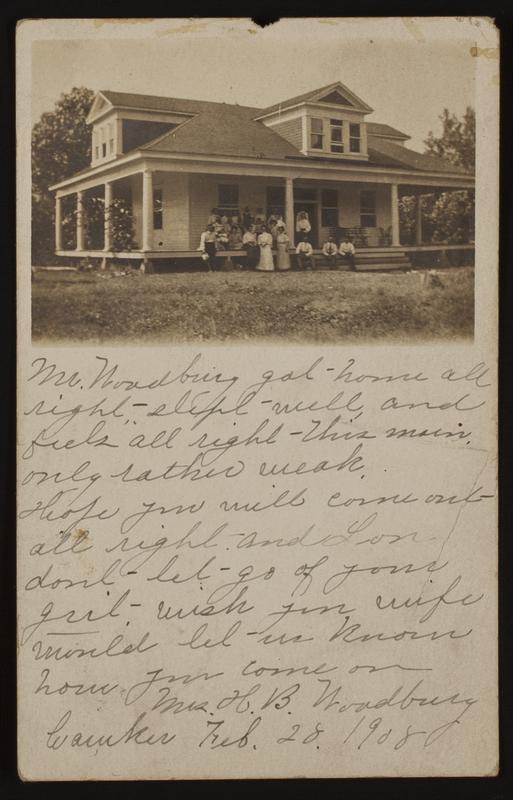 Mr. Woodbury got home all
right - slept - well, and
feels "all right - this morn.
only rather weak.
Hope you will come out
all right. and Lon
don't - let - go of your
grit. wish you wife
would let - us know
how you come on
Mrs. H. B. Woodbury
Cawker Feb. 28. 1908